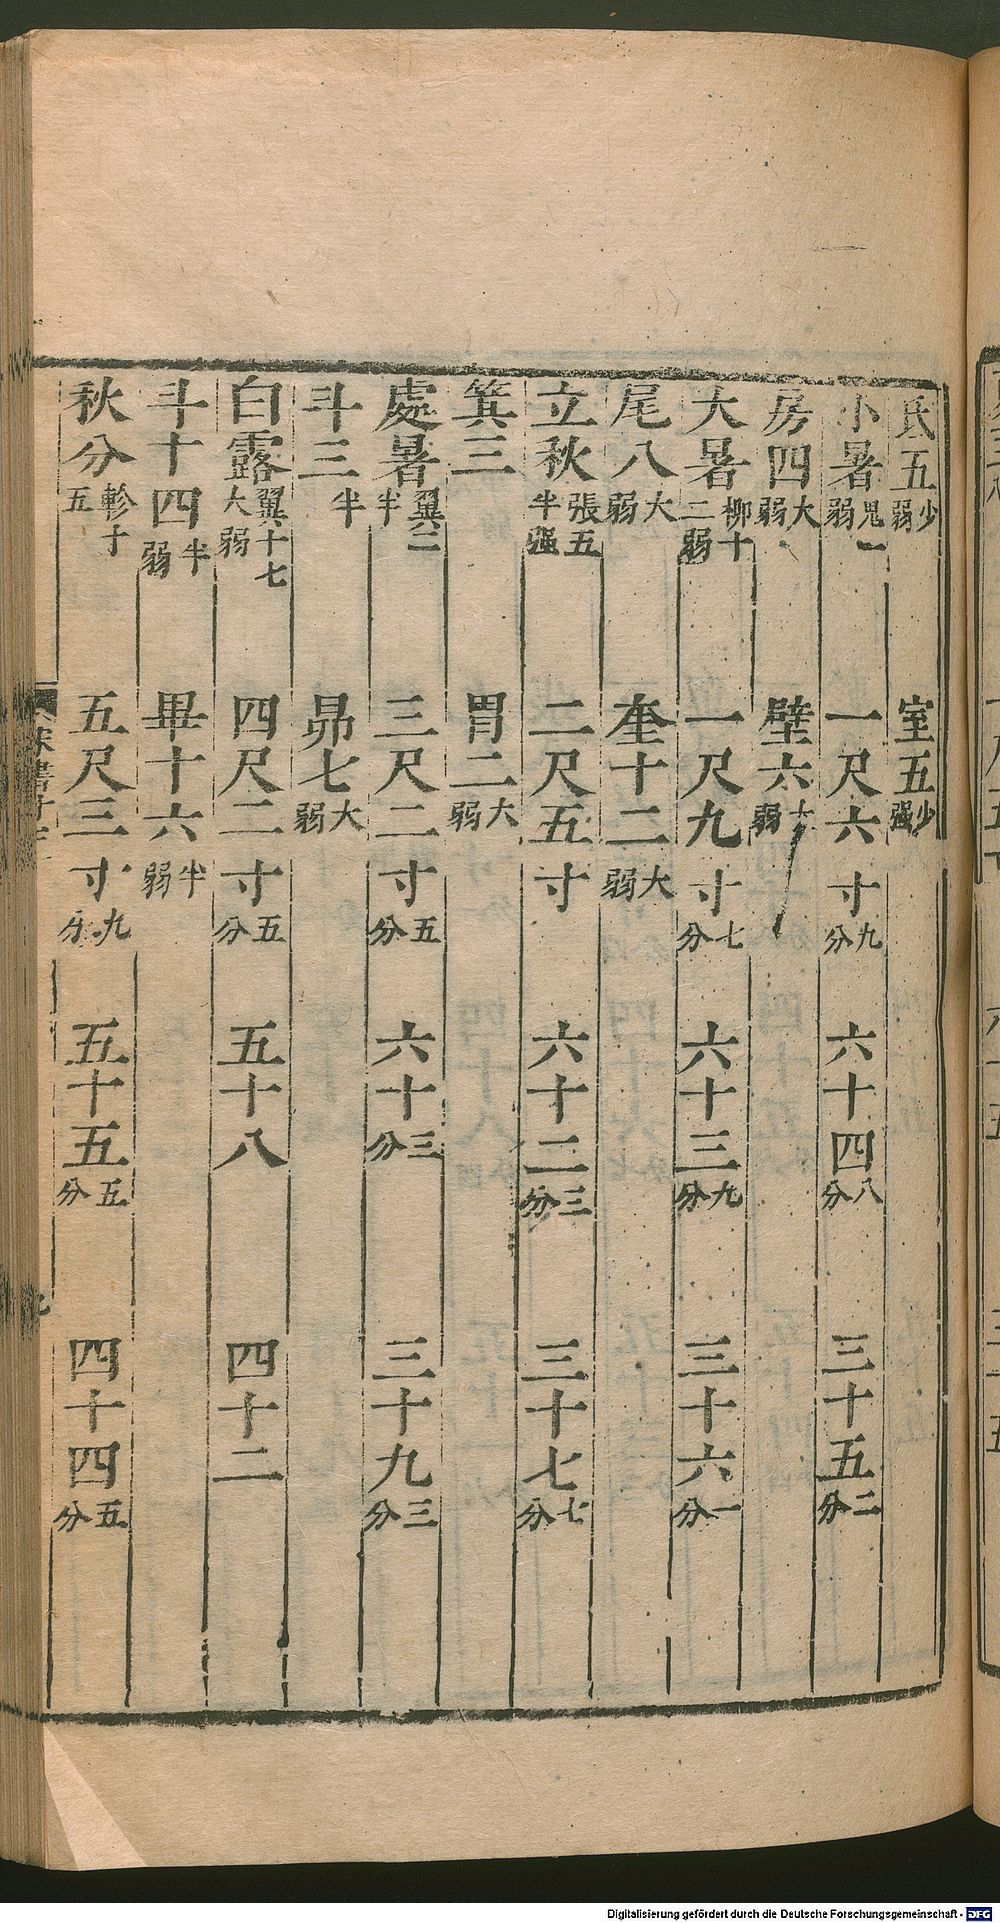 氐五少弱 室五少强
小暑鬼一弱 一尺六寸九分 六十四八分 三十五二分
房四大弱 壁六弱
大暑柳十二弱 一尺九寸七分 六十三九分 三十六一分
尾八大弱 奎十二大弱
立秋張五半强 二尺五寸 六十二三分 三十七七分
箕三 胃二大弱
處暑翼二半 三尺二寸五分 六十三分 三十九三分
斗三半 昴七大弱
白露翼十七大弱 四尺二寸五分 五十八 四十二
斗十四半弱 畢十六半弱
秋分軫子五 五尺三寸九分 五十五五分 四十四五分
Digitalisierung gefördert durch die Deutsche Forschungsgemeinschaft - DFG